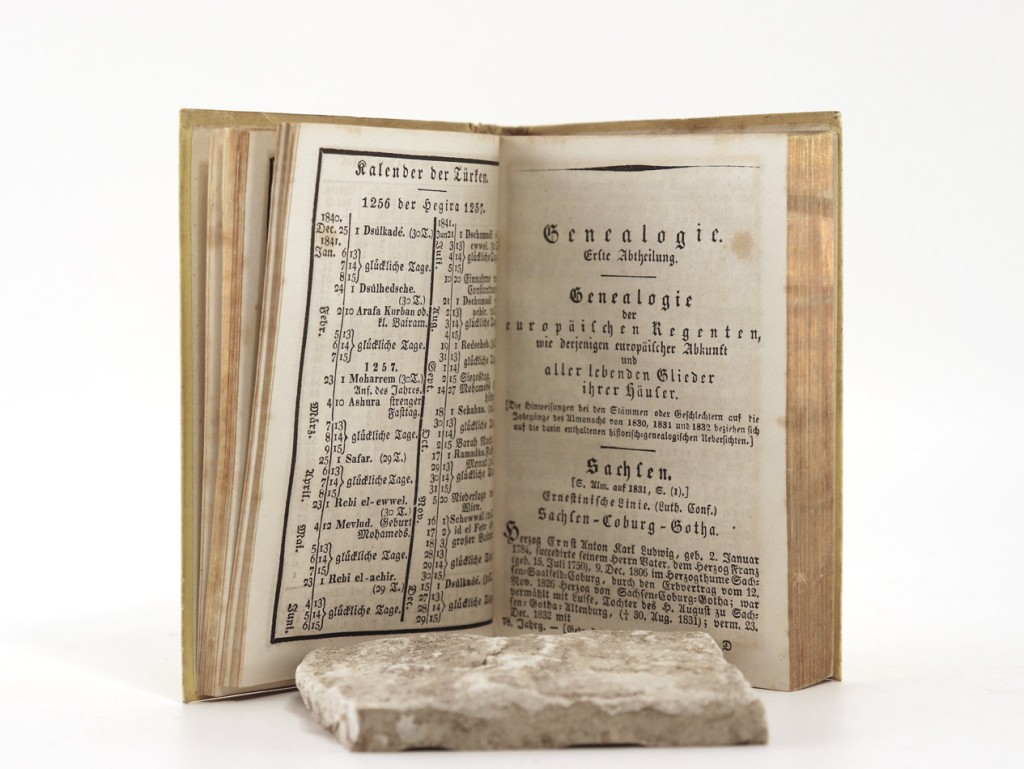 Kalender der Türken.
1256 der Hegira 1257.
1840.
Dec. 25 1 Dsúlkadé. (30 T.)
1841.
Jan. 6 13
7 14 glückliche Tage.
8 15
24 1 Dsúlhedsche.
(30 T.)
Febr. 2 10 Arafa Kurban od.
kl. Bairam.
5 13
6 14 glückliche Tage.
7 15
1257.
23 1 Moharrem (30 T.)
Anf. des Jahres.
März. 4 10 Ashura strenger
Fasttag.
7 13
8 14 glückliche Tage.
9 15
25 1 Safar. (29 T.)
April. 6 13
7 14 glückliche Tage.
8 15
23 1 Rebi el-ewwel.
(30 T.)
Mai. 4 12 Mevlud. Geburt
Mohameds.
5 13
6 14 glückliche Tage.
7 15
23 1 Rebi el-achir.
(29 T.)
Juni. 4 13
5 14 glückliche Tage.
6 15
1841.
Jun 21 1 Dschumad
Juli. 3 13 ewwel.
4 14 glückliche
5 15
10 20 Einnahme
21 1 Dschumad
Aug. 2 13 achir.
3 14 glückliche
4 15
19 1 Redscheb.
31 13
Sept. 1 14 glückliche
2 15 Siegestag
14 27 Mohameds
18 1 Schaban.
30 13
Oct. 1 14 glückliche
2 15 Barah
17 1 Ramadan.
29 13 Monat
30 14 glückliche
31 15
Nov. 5 20 Niederlage
Wien.
16 1 Schewwal.
17 2 id el Fetr
18 3 großer
28 13
29 14 glückliche
30 15
Dec. 15 1 Dsúlkadé.
27 13
28 14 glückliche
29 15
Genealogie.
Erste Abtheilung.
Genealogie
der
europäischen Regenten,
wie derjenigen europäischer Abkunft
und
aller lebenden Glieder
ihrer Häuser.
[Die Hinweisungen bei den Stämmen oder Geschlechtern auf die
Jahrgänge des Almanachs von 1830, 1831 und 1832 beziehen sich
auf die darin enthaltenen historisch-genealogischen Uebersichten.]
Sachsen.
[S. Alm. auf 1831, S. (1).]
Ernestinische Linie. (Luth. Conf.)
Sachsen-Coburg-Gotha.
Herzog Ernst Anton Karl Ludwig, geb. 2. Januar
1784, succedirte seinem Herrn Vater, dem Herzog Franz
(geb. 15. Juli 1750), 9. Dec. 1806 im Herzogthume Sach-
sen-Saalfeld-Coburg, durch den Erbvertrag vom 12.
Nov. 1826 Herzog von Sachsen-Coburg-Gotha; war
vermählt mit Luise, Tochter des H. August zu Sach-
sen-Gotha-Altenburg, († 30. Aug. 1831); verm. 23.
Dec. 1832 mit
78. Jahrg. — [Ged
D